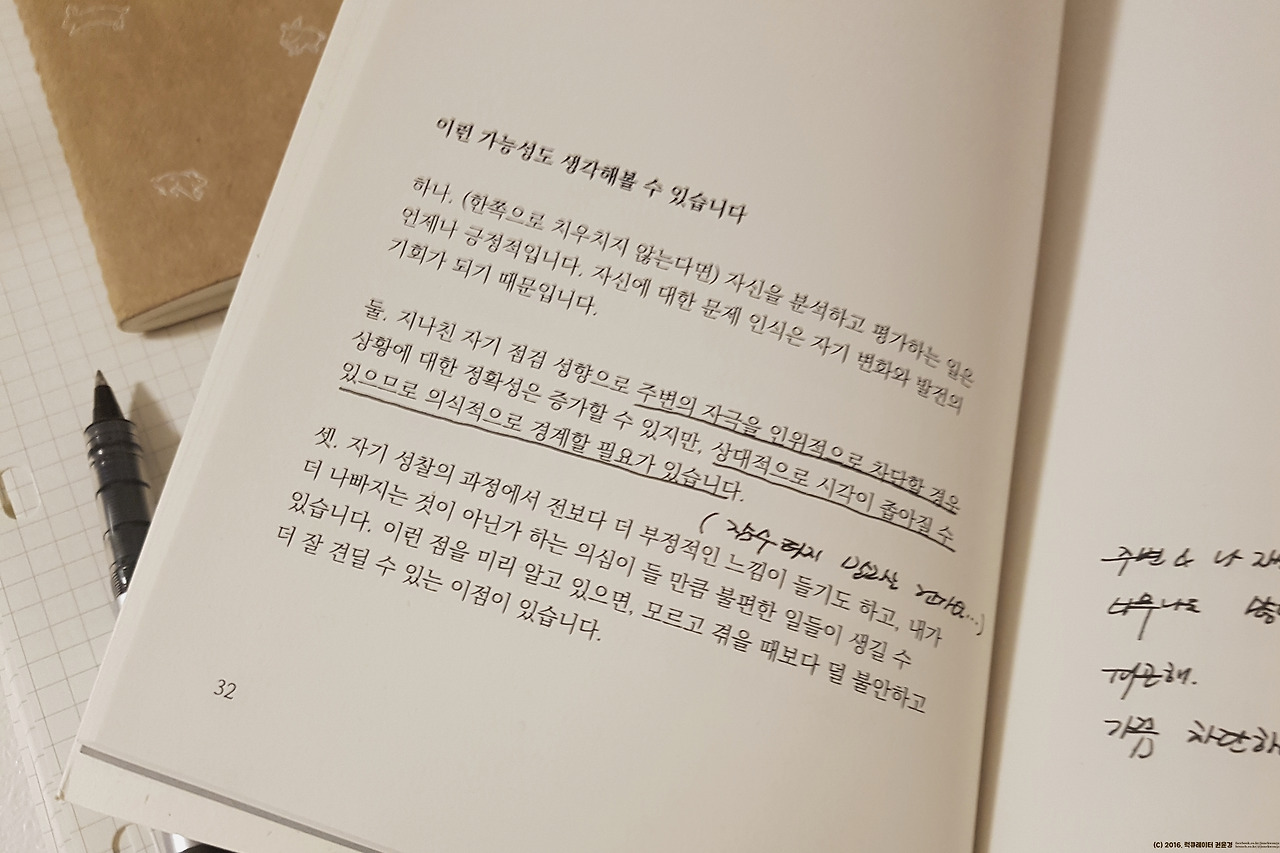 이런 가능성도 생각해볼 수 있습니다
하나. (한쪽으로 치우치지 않는다면) 자신을 분석하고 평가하는 일은
언제나 긍정적입니다. 자신에 대한 문제 인식은 자기 변화와 발전의
기회가 되기 때문입니다.
둘. 지나친 자기 점검 성향으로 주변의 자극을 인위적으로 차단할 경우
상황에 대한 정확성은 증가할 수 있지만, 상대적으로 시각이 좁아질 수
있으므로 의식적으로 경계할 필요가 있습니다.
셋. 자기 성찰의 과정에서 전보다 더 부정적인 느낌이 들기도 하고, 내가
더 나빠지는 것이 아닌가 하는 의심이 들 만큼 불편한 일들이 생길 수
있습니다. 이런 점을 미리 알고 있으면, 모르고 겪을 때보다 덜 불안하고
더 잘 견딜 수 있는 이점이 있습니다.
32
주변 & 나
피곤해.
가끔 차단하
(C) 2016. 럭큐레이터 권윤경